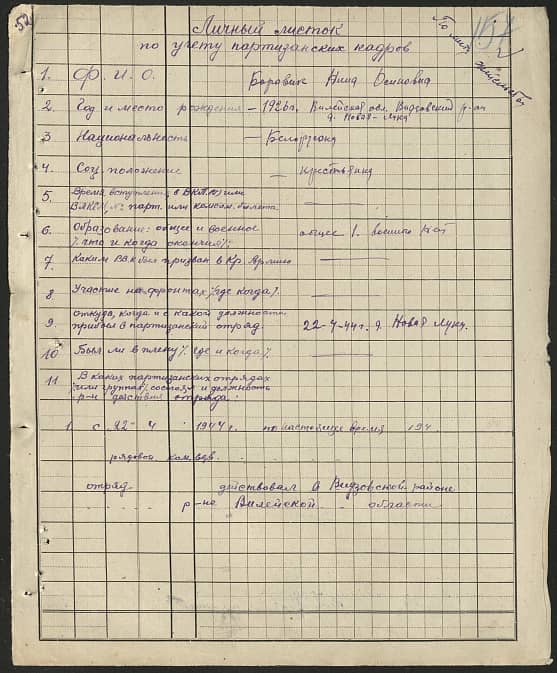 52
Личный листок
по учету партизанских кадров
По месту жительства
1. Ф. И. О. Боровик Нина Осиповна
2. Год и место рождения – 1926г, Вилейская обл. Видзовский р-он
д. Новая-Лука
3 Национальность — Белорусска
4. Соц. положение — крестьянка
5. Время вступления в ВКП(б) или
ВЛКСМ, № парт. или комсом. билета —
6. Образование: общее и военное
/. что и когда окончил/. общее 1. военного нет
7. Каким ВВК был призван в Кр. Армию —
8. Участие на фронтах /. где когда/. —
9. откуда, когда и с какой должности
прибыл в партизанский отряд. 22-4-44г. д. Новая Лука.
10 Был ли в плену /. где и когда/. —
11 В каких партизанских отрядах
/или группах/ состоял и должность
р-н действия отряда.
1. с 22- 4 1944г. по настоящее время 194
рядовой
отряд действовал в Видзовской районе
р-не Вилейской области